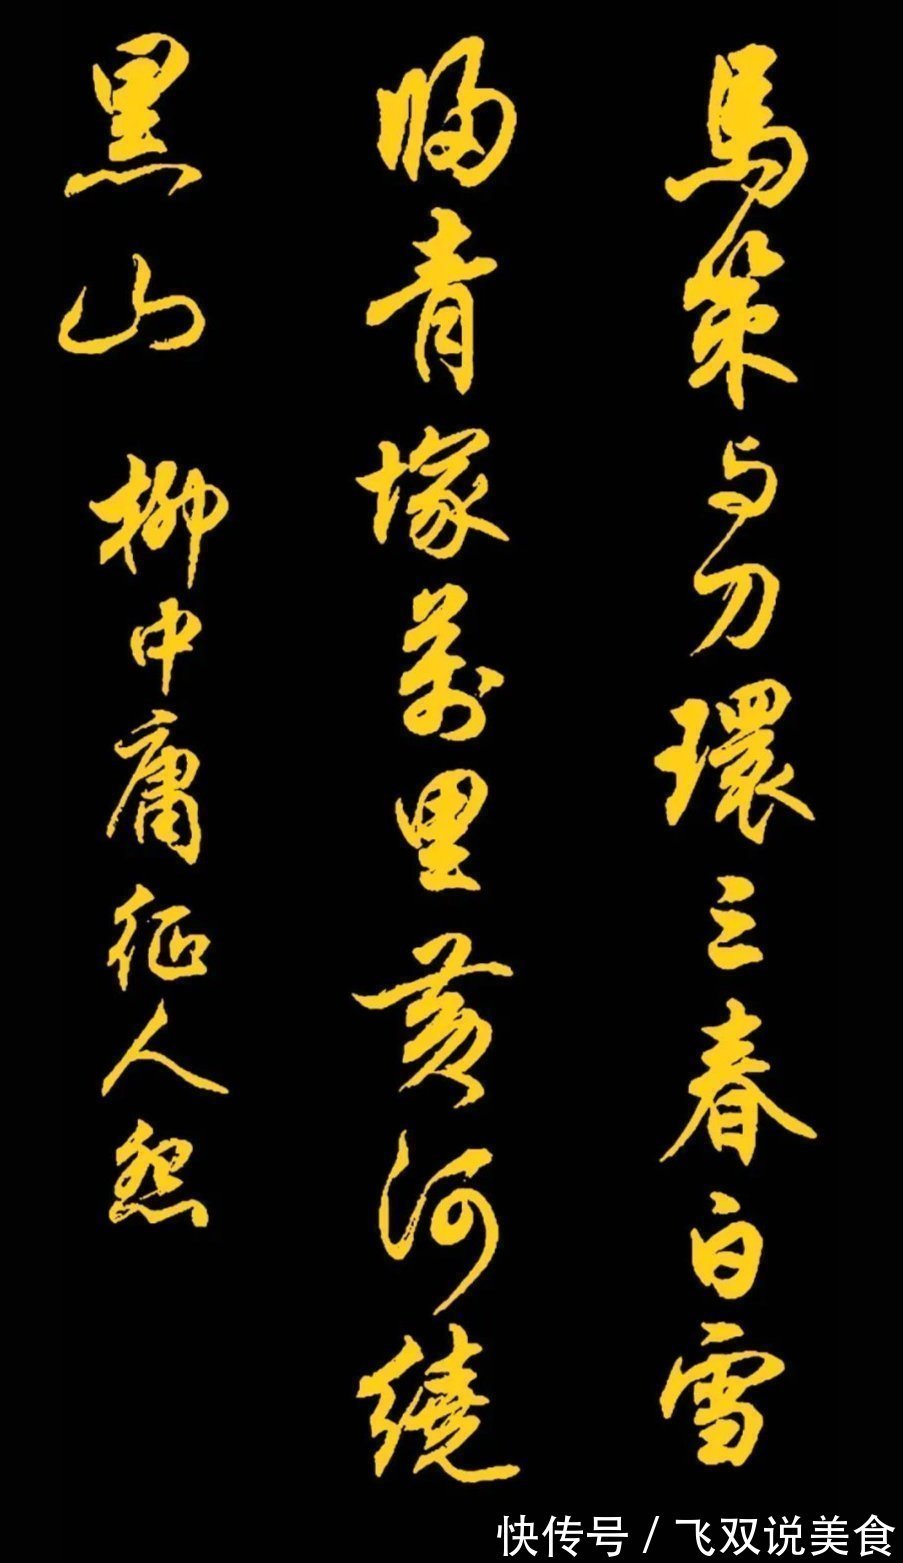 馬策与刀環三春白雪
歸青塚萬里黄河繞
黑山 柳中庸征人怨
快传号 / 飞双说美食